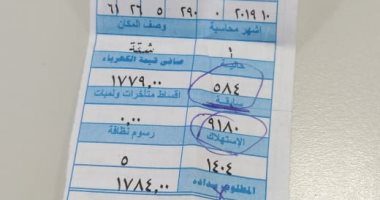 ١٠ ٢٠١٩ ٠ ٢٩٠ ٥ ٢٦ ٦١
اشهر محاسبة وصف المكان
١ شقة
حالية صافى قيمة الكهرباء
٥٨٤ ١٧٧٩,٠٠
سابقة اقساط متأخرات ولمبات
٩١٨٠ ٠,٠٠
الإستهلاك رسوم نظافة
١٤٠٤ ٥
المطلوب سداده ١٧٨٤,٠٠